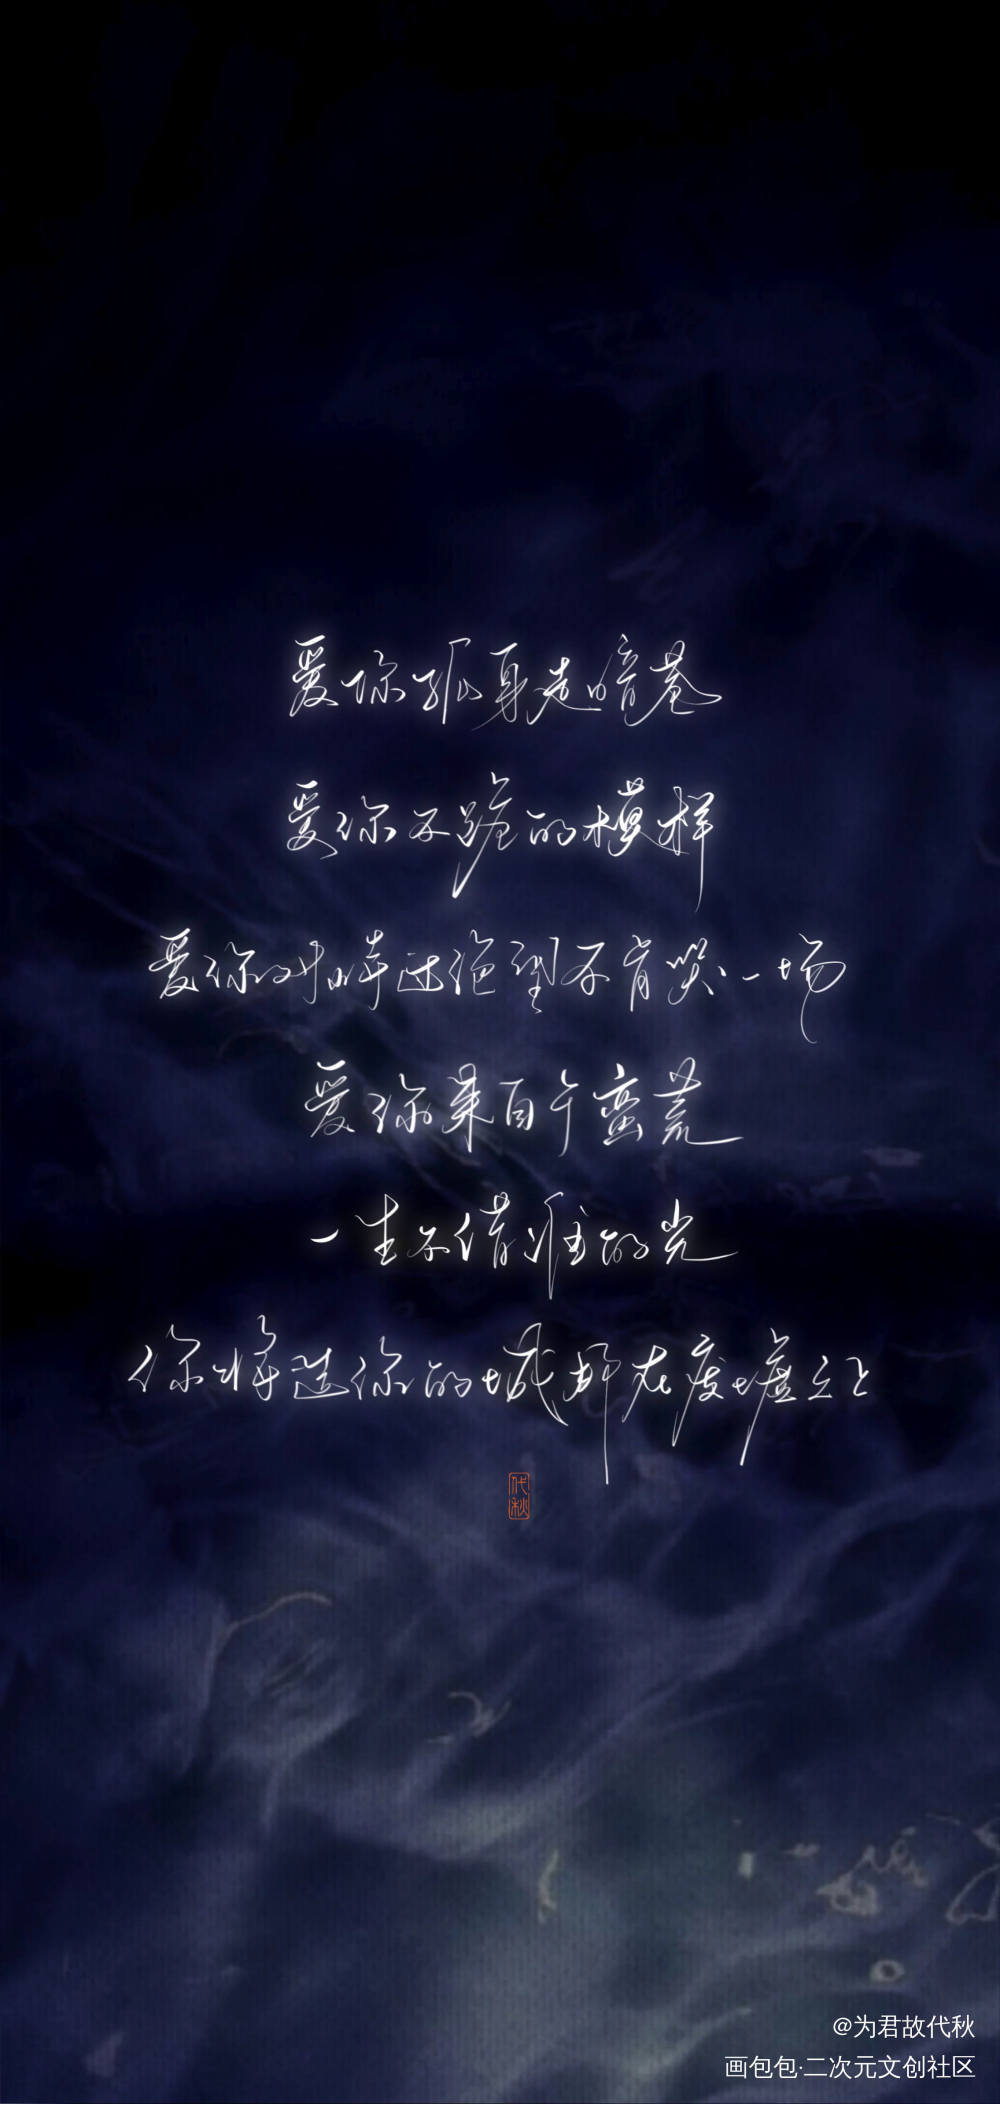 爱你孤身走暗巷
爱你不跪的模样
爱你对峙过绝望不肯哭一场
爱你来自于蛮荒
一生不借谁的光
你将造你的城邦在废墟之上
代秋
@为君故代秋
画包包·二次元文创社区